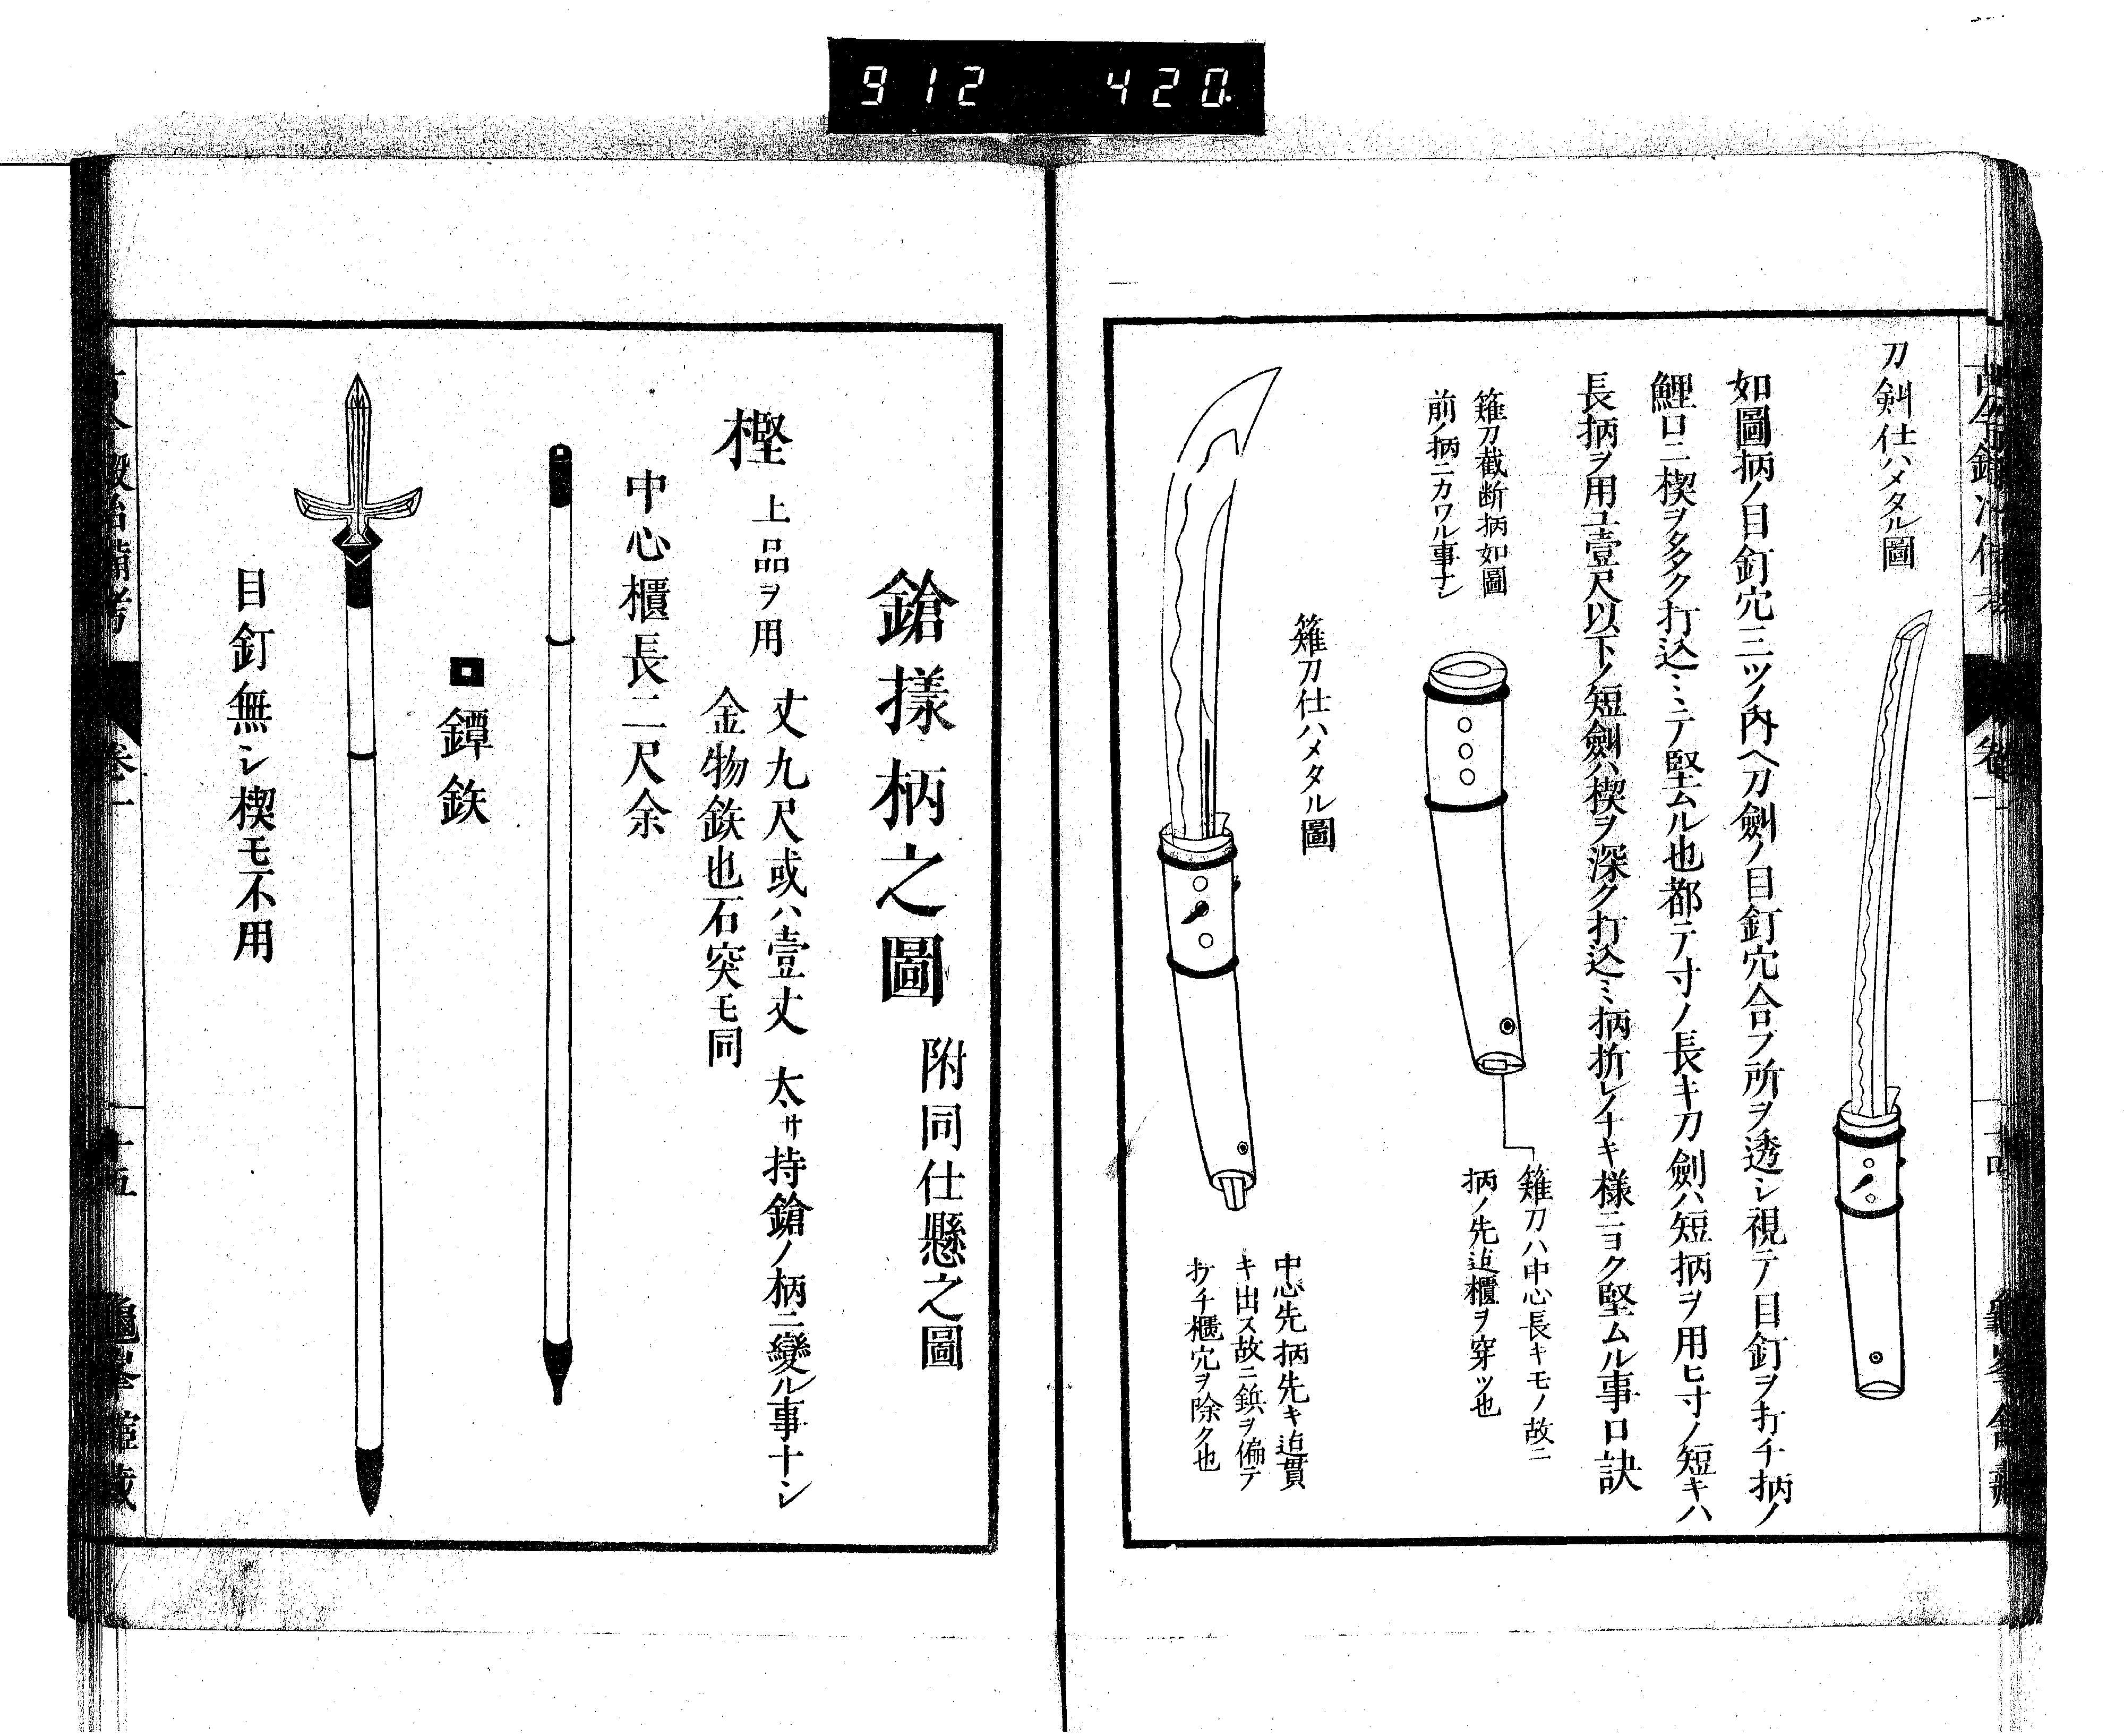 912 420
刀剣仕ハメタル圖
如圖柄ノ目釘穴三ツノ内ヘ刀劍ノ目釘穴合フ所ヲ透シ視テ目釘ヲ打チ柄ノ
鯉口ニ楔ヲ多ク打込ミテ堅ムル也都テ寸ノ長キ刀劍ハ短柄ヲ用ヒ寸ノ短キハ
長柄ヲ用ユ壹尺以下ノ短劍ハ楔ヲ深ク打込ミ柄折レノナキ様ニヨク堅ムル事口訣
薙刀截断柄如圖
前ノ柄ニカワル事ナシ
薙刀ハ中心長キモノ故ニ
柄ノ先迠櫃ヲ穿ツ也
薙刀仕ハメタル圖
中心先柄先キ迠貫
キ出ス故ニ鋲ヲ偏テ
打チ櫃穴ヲ除ク也
鎗様柄之圖 附同仕懸之圖
樫 上品ヲ用 丈九尺或ハ壹丈 太サ持鎗ノ柄ニ變ル事ナシ
金物鉄也石突モ同
中心櫃長二尺余
鐔鉄
目釘無シ楔モ不用
古今鍛冶備考 卷一 十五